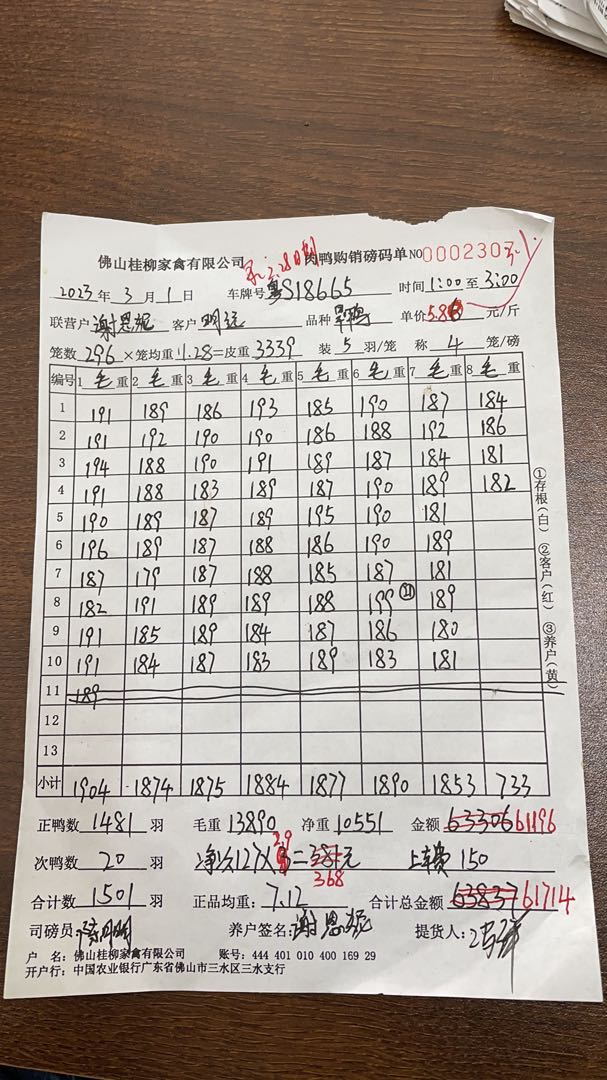 佛山桂柳家禽有限公司 肉鸭购销磅码单 NO 000230
2023年3月1日 车牌号 粤S18665 时间1:00至3:00
联营户 谢恩妮 客户 明远 品种 单价5.8 元/斤
笼数296×笼均重11.28=皮重3339 装5羽/笼 称4笼/磅
编号 1毛重 2毛重 3毛重 4毛重 5毛重 6毛重 7毛重 8毛重
1 191 189 186 193 185 190 187 184
2 191 192 190 190 186 188 192 186
3 194 188 190 191 189 187 184 181
4 191 188 183 189 187 190 189 182
5 190 189 187 189 195 190 181
6 196 189 187 188 186 190 189
7 187 179 187 188 185 187 181
8 182 191 189 189 188 199 ㉑ 189
9 191 185 189 184 187 186 180
10 191 184 187 183 189 183 181
11 189
12
13
小计 1904 1874 1875 1884 1877 1890 1853 733
正鸭数1481羽 毛重13890 净重10551 金额63306 61196
次鸭数20羽 净次127×2.9=381元 368 上车费150
合计数1501羽 正品均重:7.12 合计总金额63837 61714
司磅员 养户签名:谢恩妮 提货人:
户 名:佛山桂柳家禽有限公司 账号:444 401 010 400 169 29
开户行:中国农业银行广东省佛山市三水区三水支行
①存根(白) ②客户(红) ③养户(黄)